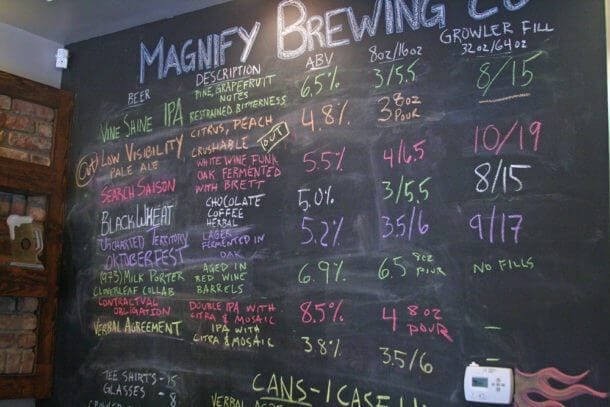 MAGNIFY BREWING CO
BEER DESCRIPTION ABV 8oz/16oz GROWLER FILL 32oz/64oz
VINE SHINE IPA PINE, GRAPEFRUIT NOTES RESTRAINED BITTERNESS 6.5% 3/5.5 8/15
(OUT) LOW VISIBILITY PALE ALE CITRUS, PEACH CRUSHABLE OUT 4.8% 3 8oz POUR
SEARCH SAISON WHITE WINE FUNK OAK FERMENTED WITH BRETT 5.5% 4/6.5 10/19
BLACK WHEAT CHOCOLATE COFFEE HERBAL 5.0% 3/5.5 8/15
UNCHARTED TERRITORY OKTOBERFEST LAGER FERMENTED IN OAK 5.2% 3.5/6 9/17
(973) MILK PORTER CLOVERLEAF COLLAB AGED IN RED WINE BARRELS 6.9% 6.5 8oz POUR NO FILLS
CONTRACTUAL OBLIGATION DOUBLE IPA WITH CITRA & MOSAIC 8.5% 4 8oz POUR –
VERBAL AGREEMENT IPA WITH CITRA & MOSAIC 3.8% 3.5/6 –
TEE SHIRTS - 15
GLASSES - 8
CANS - 1 CASE
VERBAL